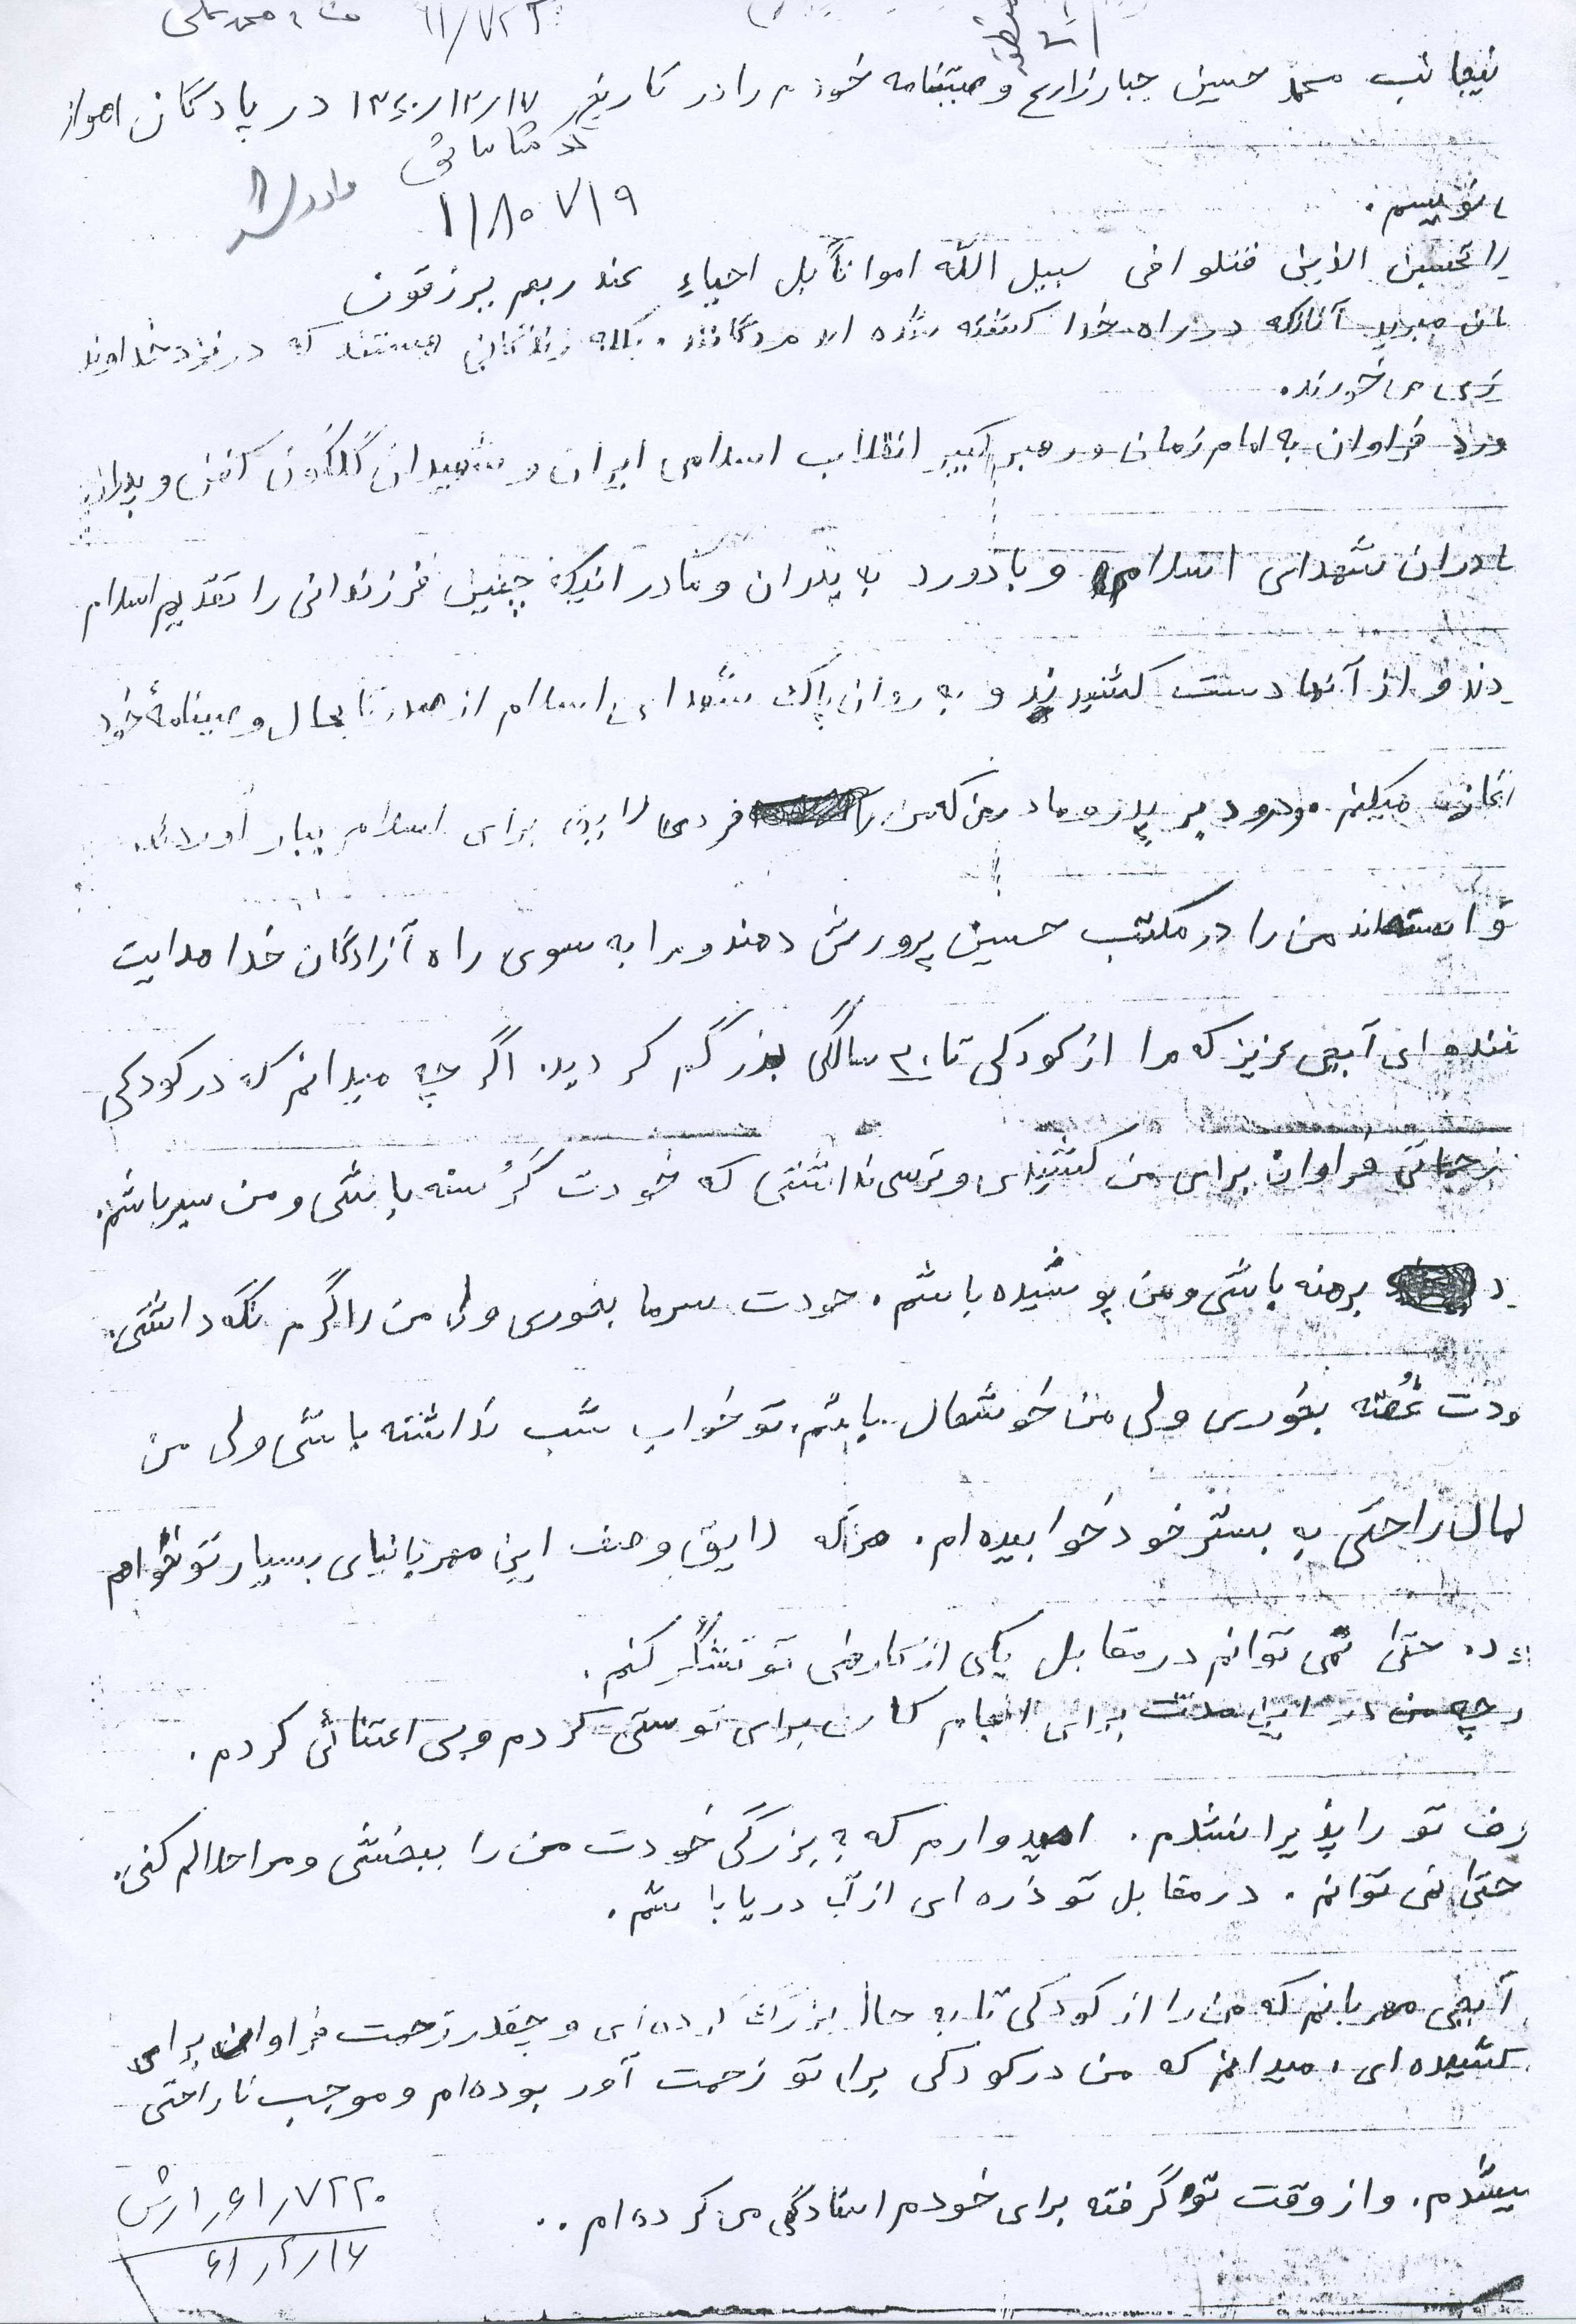 محمد علی ۱۱/۷۲۲
ینجانب محمد حسین جبارزارع وصیتنامه خودم را در تاریخ ۱۳۶۰/۱۲/۱۷ در پادگان اهواز
۱۱/۸۰۷۱۹
نویسم.
لاتحسبن الذین قتلوا فی سبیل الله امواتاً بل احیاءٍ عند ربهم یرزقون
ان مبرید آنانکه در راه خدا کشته شده اند مردگانند. بلکه زندگانی هستند که در نزد خداوند
زی می خورند.
ورد فراوان به امام زمان و رهبر کبیر انقلاب اسلامی ایران و شهیدان گلگون کفن و پدران
ادران شهدای اسلام و با دورد به پدران و مادرانیکه چنین فرزندانی را تقدیم اسلام
دند و از آنها دست کشیدند و به روان پاک شهدای اسلام از صدر تا بحال وصیتنامهٔ خود
آغاز میکنم. و درود بر پدر و مادر من که من را فردی برای اسلام ببار آوردند.
توانسته‌اند من را در مکتب حسین پرورش دهند و مرا به سوی راه آزادگان خدا هدایت
نند. ای آبجی عزیز که مرا از کودکی تا ۲۰ سالگی بزرگم کردید. اگر چه میدانم که در کودکی
زحماتی فراوان برای من کشیدی و ترسی نداشتی که خودت گرُسنه باشی و من سیر باشم.
د برهنه باشی و من پوشیده باشم. خودت سرما بخوری ولی من را گرم نگه داشتی.
ودت غُصّه بخوری ولی من خوشحال باشم. تو خواب شب نداشته باشی ولی من
کمال راحتی به بستر خود خوابیده‌ام. هرآنکه لایق وصف این مهربانیای بسیار تو نخواهم
ده. حتیٰ نمی توانم در مقابل یکی از کارهای تو تشکّر کنم.
رچه من در این مدت برای انجام کاری برای تو سستی کردم و بی اعتنائی کردم.
رف تو را پذیرا نشدم. امیدوارم که به بزرگی خودت من را ببخشی و مرا حلالم کنی.
حتیٰ نمی توانم. در مقابل تو ذره ای از آب دریا باشم.
آبجی مهربانم که من را از کودکی تا به حال بزرگ کرده‌ای و چقدر زحمت فراوان برای
کشیده ای، میدانم که من در کودکی برای تو زحمت آور بوده‌ام و موجب ناراحتی
یشدم. و از وقت تو گرفته برای خودم استادگی می کرده‌ام..
۶۱٫۷۲۲۰
۶۱٫۲٫۱۶